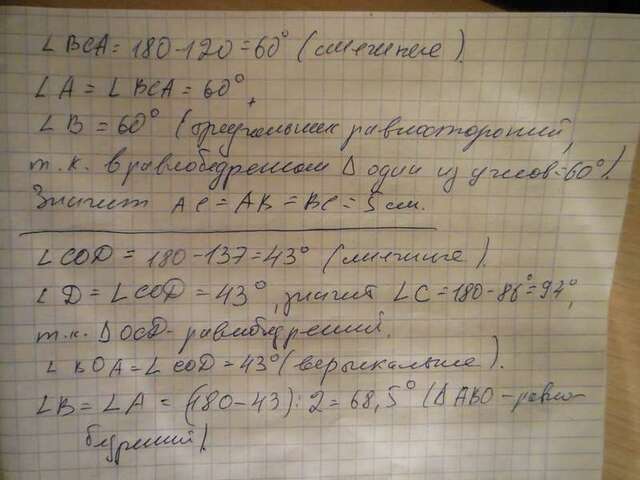 ∠ BCA = 180-120 = 60° (смежные).
∠ A = ∠ BCA = 60°,
∠ B = 60° (треугольник равносторонний,
т.к. в равнобедренном Δ один из углов = 60°).
Значит AC = AB = BC = 5 см.
∠ COD = 180-137 = 43° (смежные).
∠ D = ∠ COD = 43°, значит ∠ C = 180-86° = 94°,
т.к. Δ OCD - равнобедренный.
∠ BOA = ∠ COD = 43° (вертикальные).
∠ B = ∠ A = (180-43) : 2 = 68,5° (Δ ABO - равно-
бедренный).